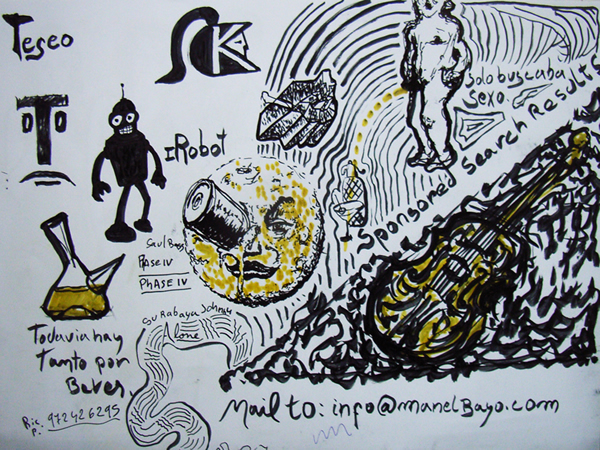 Teseo
SK
IRobot
solo buscaba
sexo.
Sponsored Search Results
Saul Bass
FASE IV
PHASE IV
Surabaya Johnny
Alone
Todavia hay
Tanto por
Beber.
Ric.
P. 972426295
Mail to: info@manelBayo.com